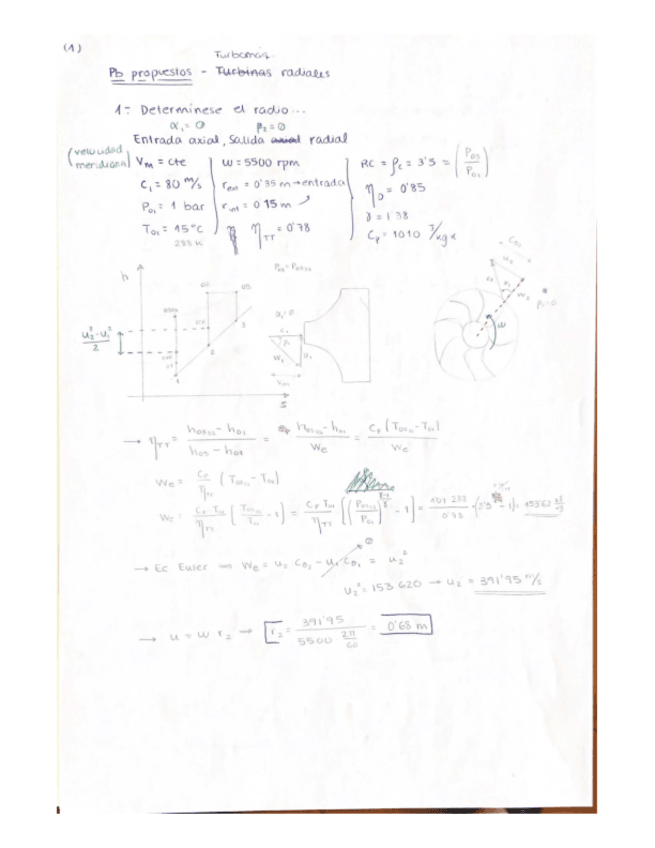 (1)
Turbomáq.
Pb propuestos - Turbinas radiales
1- Determínese el radio...
α₁ = 0 β₂ = 0
Entrada axial, Salida axial radial
(velocidad meridiana) Vm = cte
C₁ = 80 m/s
P₀₁ = 1 bar
T₀₁ = 15°C
288 K
ω = 5500 rpm
r_ext = 0'35 m → entrada
r_int = 0'15 m
η_TT = 0'78
RC = ρc = 3'5 = (P₀₃/P₀₁)
η_D = 0'85
γ = 1'38
Cp = 1010 J/kg K
h
(u₂² - u₁²)/2
1
2
3
s
α₁ = 0
C₁
β₁
W₁
u₁
C₀₂
u₂
W₂
β₂ = 0
ω
→ η_TT = (h₀₃ss - h₀₁)/(h₀₃ - h₀₁) = (h₀₃ss - h₀₁)/We = Cp (T₀₃ss - T₀₁)/We
We = Cp/η_TT (T₀₃ss - T₀₁)
We = Cp T₀₁/η_TT [T₀₃ss/T₀₁ - 1] = Cp T₀₁/η_TT [(P₀₃ss/P₀₁)^((γ-1)/γ) - 1] =
→ Ec Euler ⇒ We = u₂ Cθ₂ - u₁ Cθ₁ = u₂²
0
u₂² = 153 620 → u₂ = 391'95 m/s
→ u = ω r₂ → r₂ = 391'95/(5500 2π/60) = 0'68 m